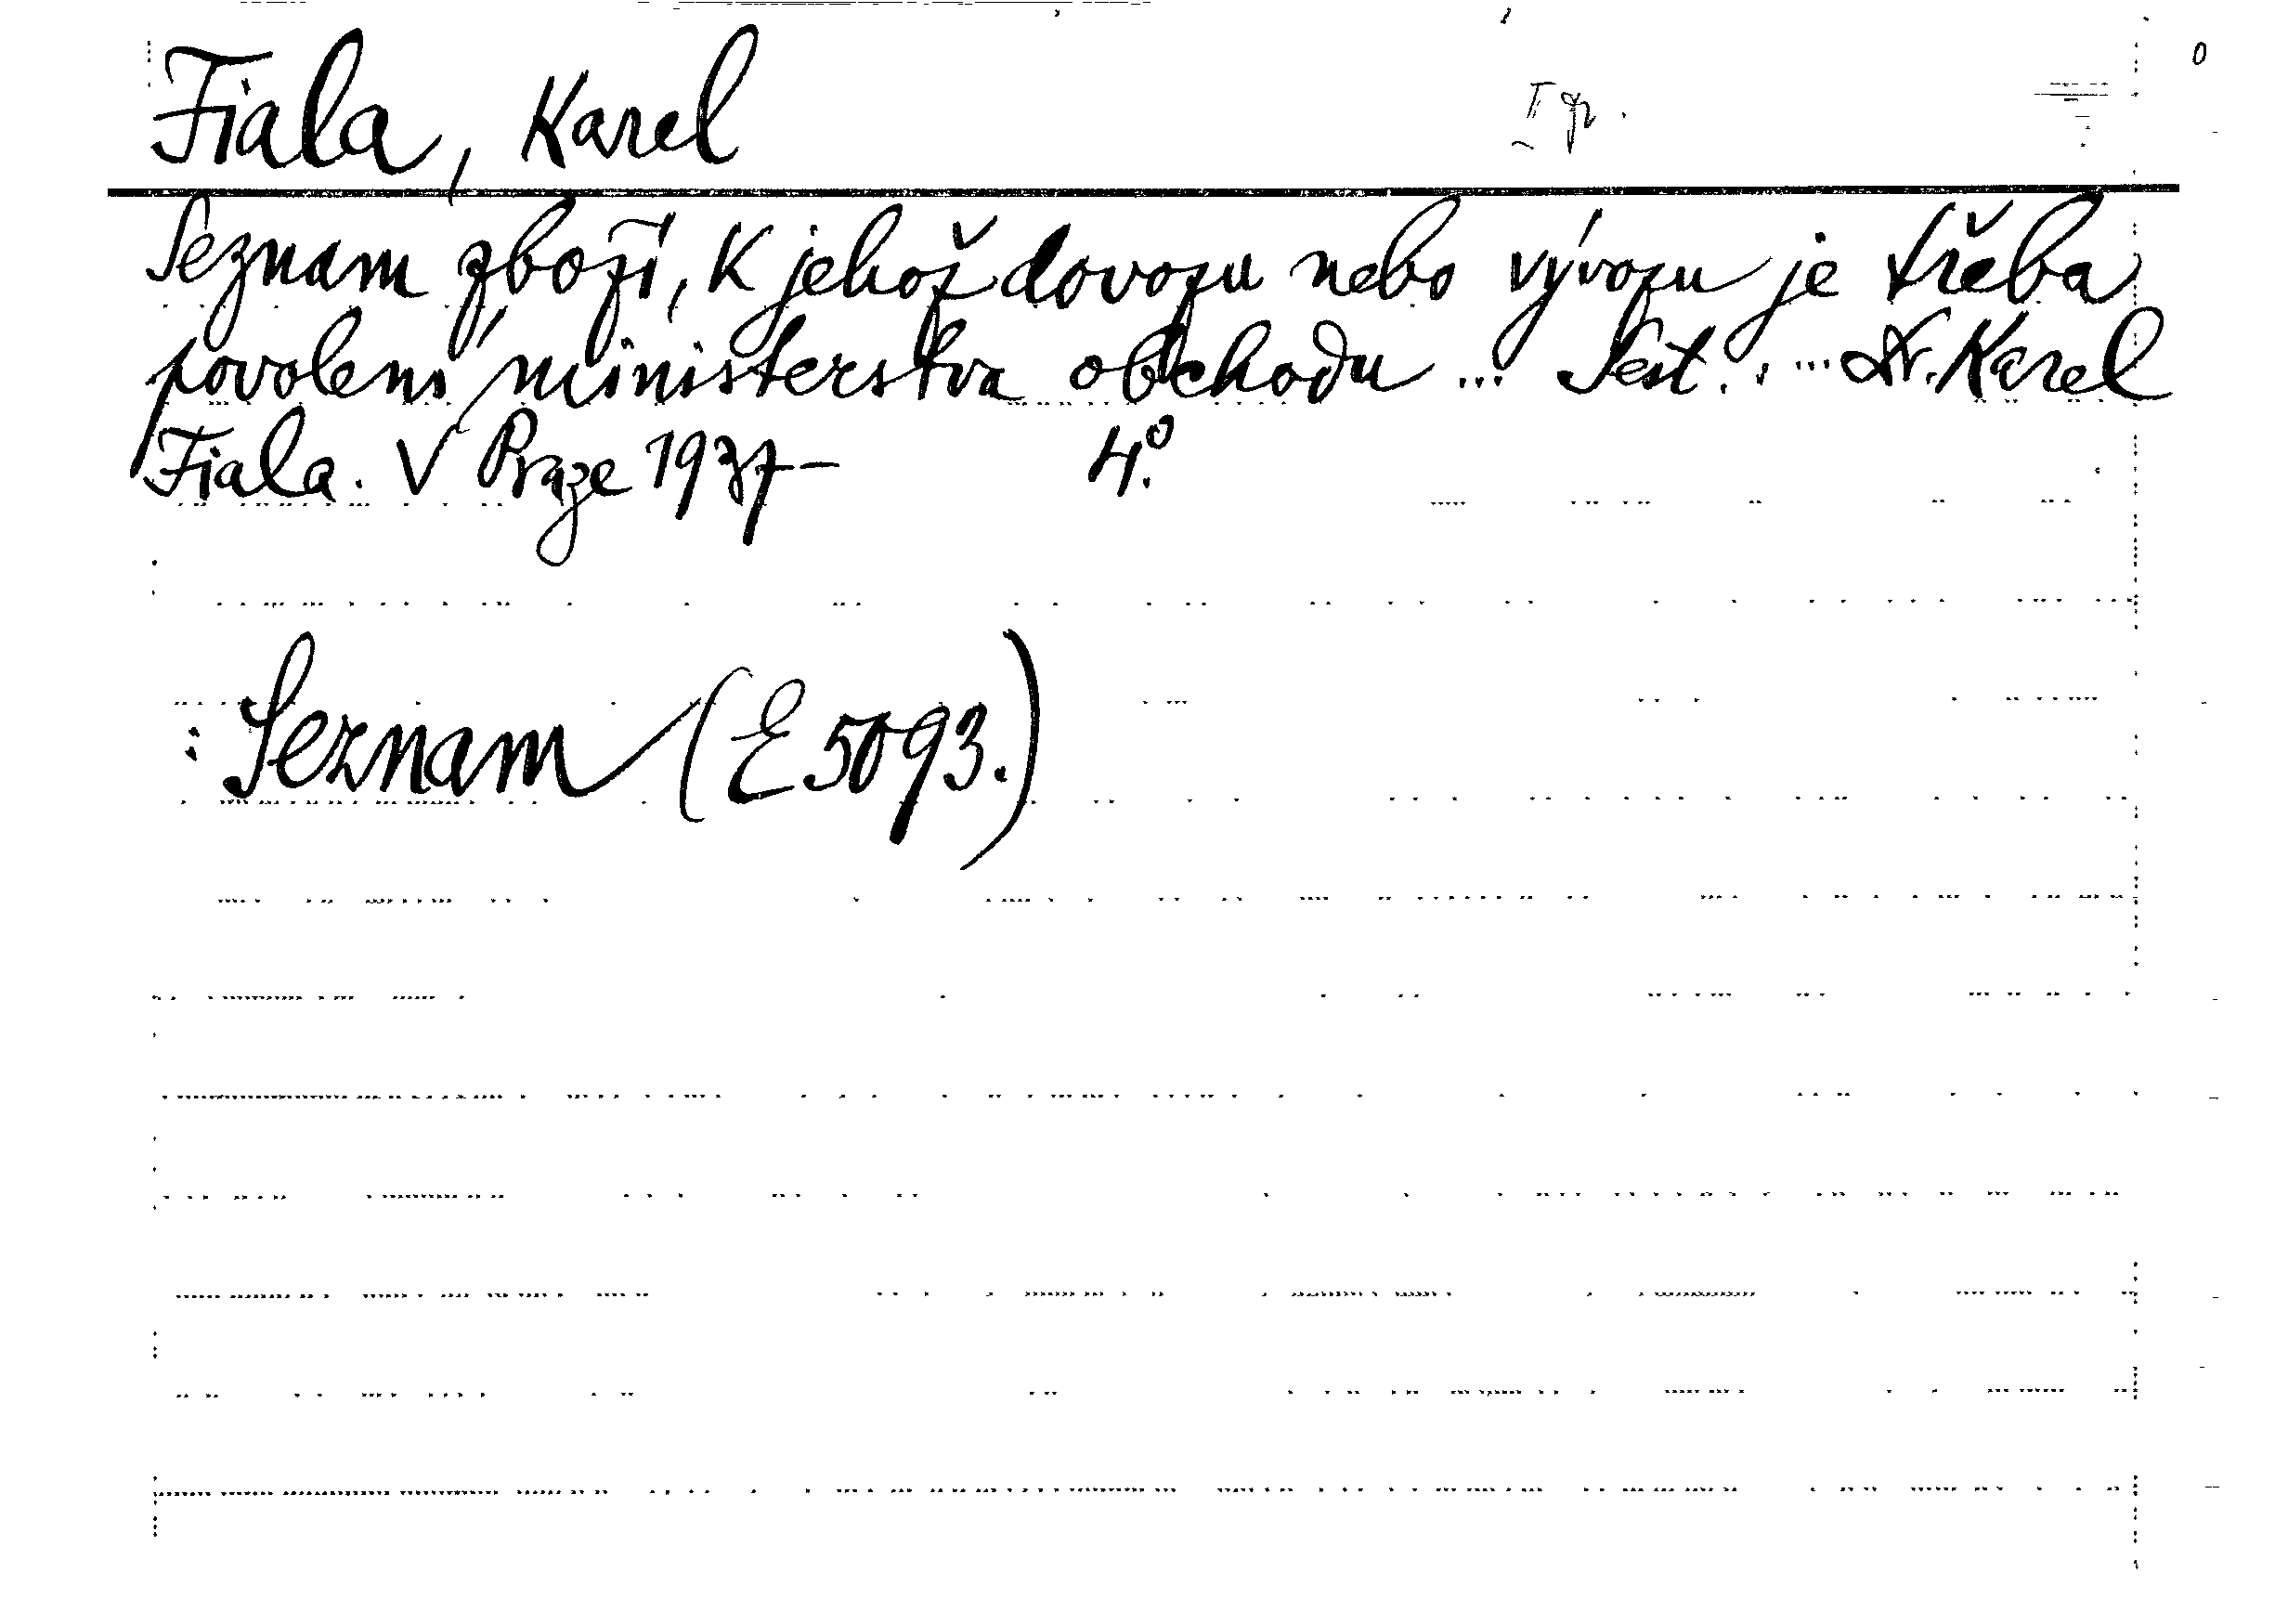 Fiala, Karel
Seznam zboží, k jehož dovozu nebo vývozu je třeba
povolení ministerstva obchodu ... Sest. ... Dr. Karel
Fiala. V Praze 1937-   4°.
Seznam (E 5093.)